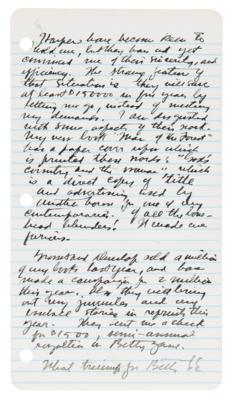 Harpers have become keen to
hold me, but they have not yet
convinced me of their sincerity and
efficiency. The strong feature of
that situation is they will save
at least $150000 in five years by
letting me go, instead of meeting
my demands. I am disgusted
with some aspects of their work.
My new book "Man of the Forest"
has a paper cover upon which
is printed these words: "God's
country and the woman" which
is a direct copy of title
and advertising used by
another house for one of my
contemporaries. Of all the bone-
head blunders! It made me
furious.
Grosset and Dunlap sold a million
of my books last year, and have
made a campaign for 2 million
this year. Also they will bring
out my juveniles and my
outdoor stories in reprint this
year. They sent me a check
for $1500, semi-annual
royalties in Betty Zane.
What triumph for Betty